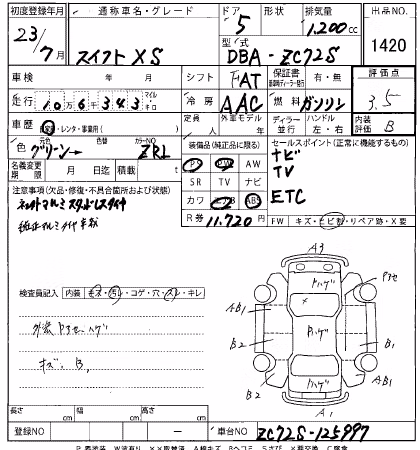 初度登録年月 通称車名・グレード ドア 形状 排気量 出品NO
23/7月 スイフト XS 5 1,200cc 1420
型式 DBA-ZC72S
車検 年 月 シフト FAT 保証書 有・無 評価点
走行 10万6千343 マイル キロ 冷房 AAC 燃料 ガソリン 3.5
車歴 自家用・レンタ・事業用( ) 定員 人 外車モデル 年 ディーラー 並行 ハンドル 左・右 内装評価 B
色 元色 グリーン→ 色替 カラーNO ZRJ
装備品(純正品に限る) セールスポイント(正常に機能するもの)
PS PW AW ナビ
名義変更期限 月 日迄 積載 t SR TV ナビ TV
注意事項(欠品・修復・不具合箇所および状態) カワ エアB ABS ETC
R券 11,720円 FW キズ・ヒビ割・リペア跡・X要
純正アルミタイヤ
検査員記入 内装 キズ・汚レ・コゲ・穴・スレ・キレ
外装 Pアセ ハゲ
キズ B,
A3
Pハゲ
Pアセ
AB1
B2
B1
AB1
B2
A1
長さ cm 幅 cm 高さ cm
登録NO 車台NO ZC72S-125997